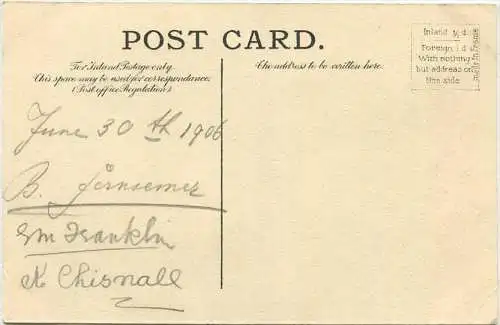 POST CARD.
For Inland Postage only
This space may be used for correspondence.
(Post office Regulation)
The address to be written here.
Inland ½ d.
Foreign 1 d
With nothing
but address on
this side
made in France
June 30th 1906
B.
Franklin
Chisnall